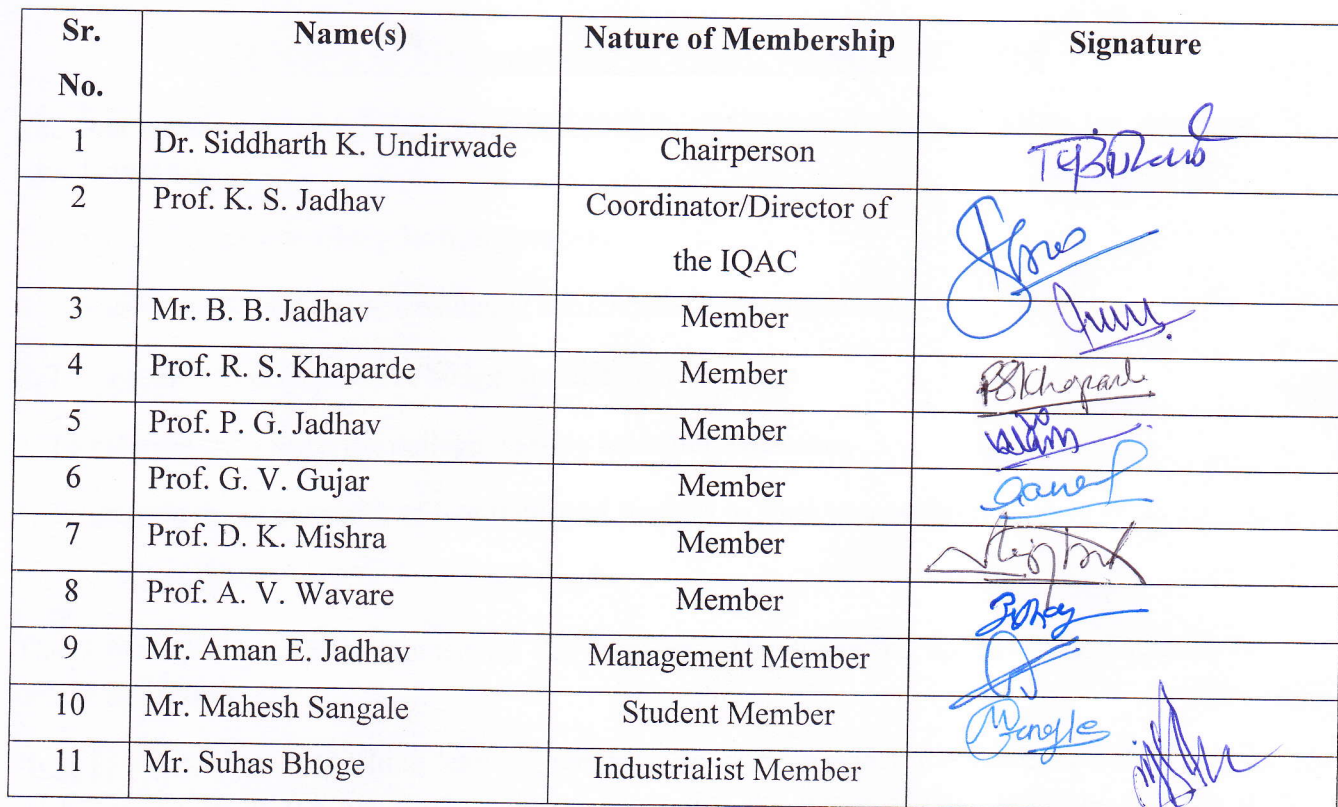 Sr. No. Name(s) Nature of Membership Signature
1 Dr. Siddharth K. Undirwade Chairperson
2 Prof. K. S. Jadhav Coordinator/Director of
the IQAC
3 Mr. B. B. Jadhav Member
4 Prof. R. S. Khaparde Member RSKhaparde
5 Prof. P. G. Jadhav Member
6 Prof. G. V. Gujar Member
7 Prof. D. K. Mishra Member
8 Prof. A. V. Wavare Member
9 Mr. Aman E. Jadhav Management Member
10 Mr. Mahesh Sangale Student Member
11 Mr. Suhas Bhoge Industrialist Member